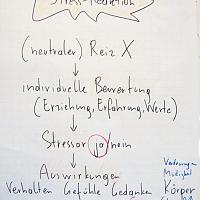 Stress-Reaktion
(neutraler) Reiz X
↓
individuelle Bewertung
(Erziehung, Erfahrung, Werte)
↓
Stressor ja/nein
↓
Auswirkungen
Verhalten Gefühle Gedanken Körper